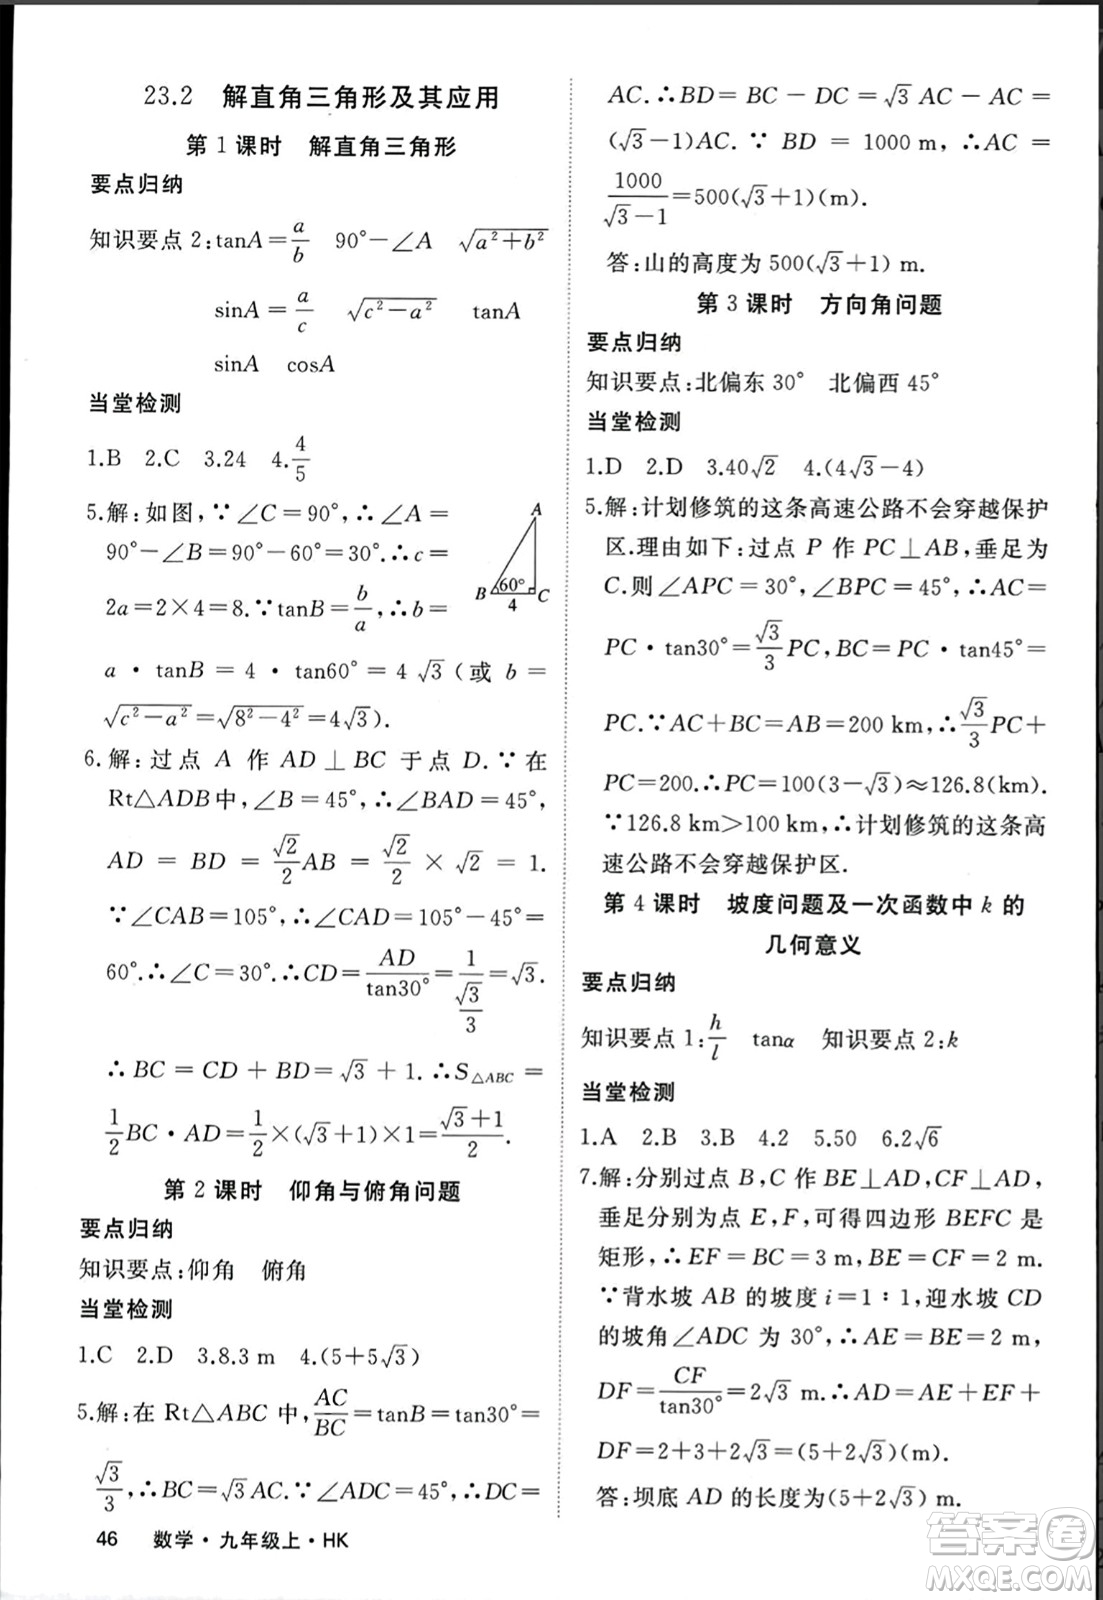 23.2 解直角三角形及其应用
第 1 课时 解直角三角形
要点归纳
知识要点 2:tanA=a/b 90°-∠A √(a²+b²)
sinA=a/c √(c²-a²) tanA
sinA cosA
当堂检测
1.B 2.C 3.24 4.4/5
5.解:如图,∵∠C=90°,∴∠A=
90°-∠B=90°-60°=30°.∴c=
2a=2×4=8.∵tanB=b/a,∴b=
a·tanB=4·tan60°=4√3(或 b=
√(c²-a²)=√(8²-4²)=4√3).
A
B 60° C
4
6.解:过点 A 作 AD⊥BC 于点 D.∵在
Rt△ADB中,∠B=45°,∴∠BAD=45°,
AD=BD=√2/2AB=√2/2×√2=1.
∵∠CAB=105°,∴∠CAD=105°-45°=
60°.∴∠C=30°.∴CD=AD/tan30°=1/(√3/3)=√3.
∴BC=CD+BD=√3+1.∴S△ABC=
1/2BC·AD=1/2×(√3+1)×1=(√3+1)/2.
第 2 课时 仰角与俯角问题
要点归纳
知识要点:仰角 俯角
当堂检测
1.C 2.D 3.8.3 m 4.(5+5√3)
5.解:在 Rt△ABC 中,AC/BC=tanB=tan30°=
√3/3,∴BC=√3AC.∵∠ADC=45°,∴DC=
46 数学·九年级上·HK
AC.∴BD=BC-DC=√3AC-AC=
(√3-1)AC.∵BD=1000 m,∴AC=
1000/(√3-1)=500(√3+1)(m).
答:山的高度为 500(√3+1) m.
第 3 课时 方向角问题
要点归纳
知识要点:北偏东 30° 北偏西 45°
当堂检测
1.D 2.D 3.40√2 4.(4√3-4)
5.解:计划修筑的这条高速公路不会穿越保护
区.理由如下:过点 P 作 PC⊥AB,垂足为
C.则∠APC=30°,∠BPC=45°,∴AC=
PC·tan30°=√3/3PC,BC=PC·tan45°=
PC.∵AC+BC=AB=200 km,∴√3/3PC+
PC=200.∴PC=100(3-√3)≈126.8(km).
∵126.8 km>100 km,∴计划修筑的这条高
速公路不会穿越保护区.
第 4 课时 坡度问题及一次函数中 k 的
几何意义
要点归纳
知识要点 1:h/l tanα 知识要点 2:k
当堂检测
1.A 2.B 3.B 4.2 5.50 6.2√6
7.解:分别过点 B,C 作 BE⊥AD,CF⊥AD,
垂足分别为点 E,F,可得四边形 BEFC 是
矩形,∴EF=BC=3 m,BE=CF=2 m.
∵背水坡 AB 的坡度 i=1∶1,迎水坡 CD
的坡角∠ADC 为 30°,∴AE=BE=2 m,
DF=CF/tan30°=2√3 m.∴AD=AE+EF+
DF=2+3+2√3=(5+2√3)(m).
答:坝底 AD 的长度为(5+2√3)m.
答案卷
MXQE.COM